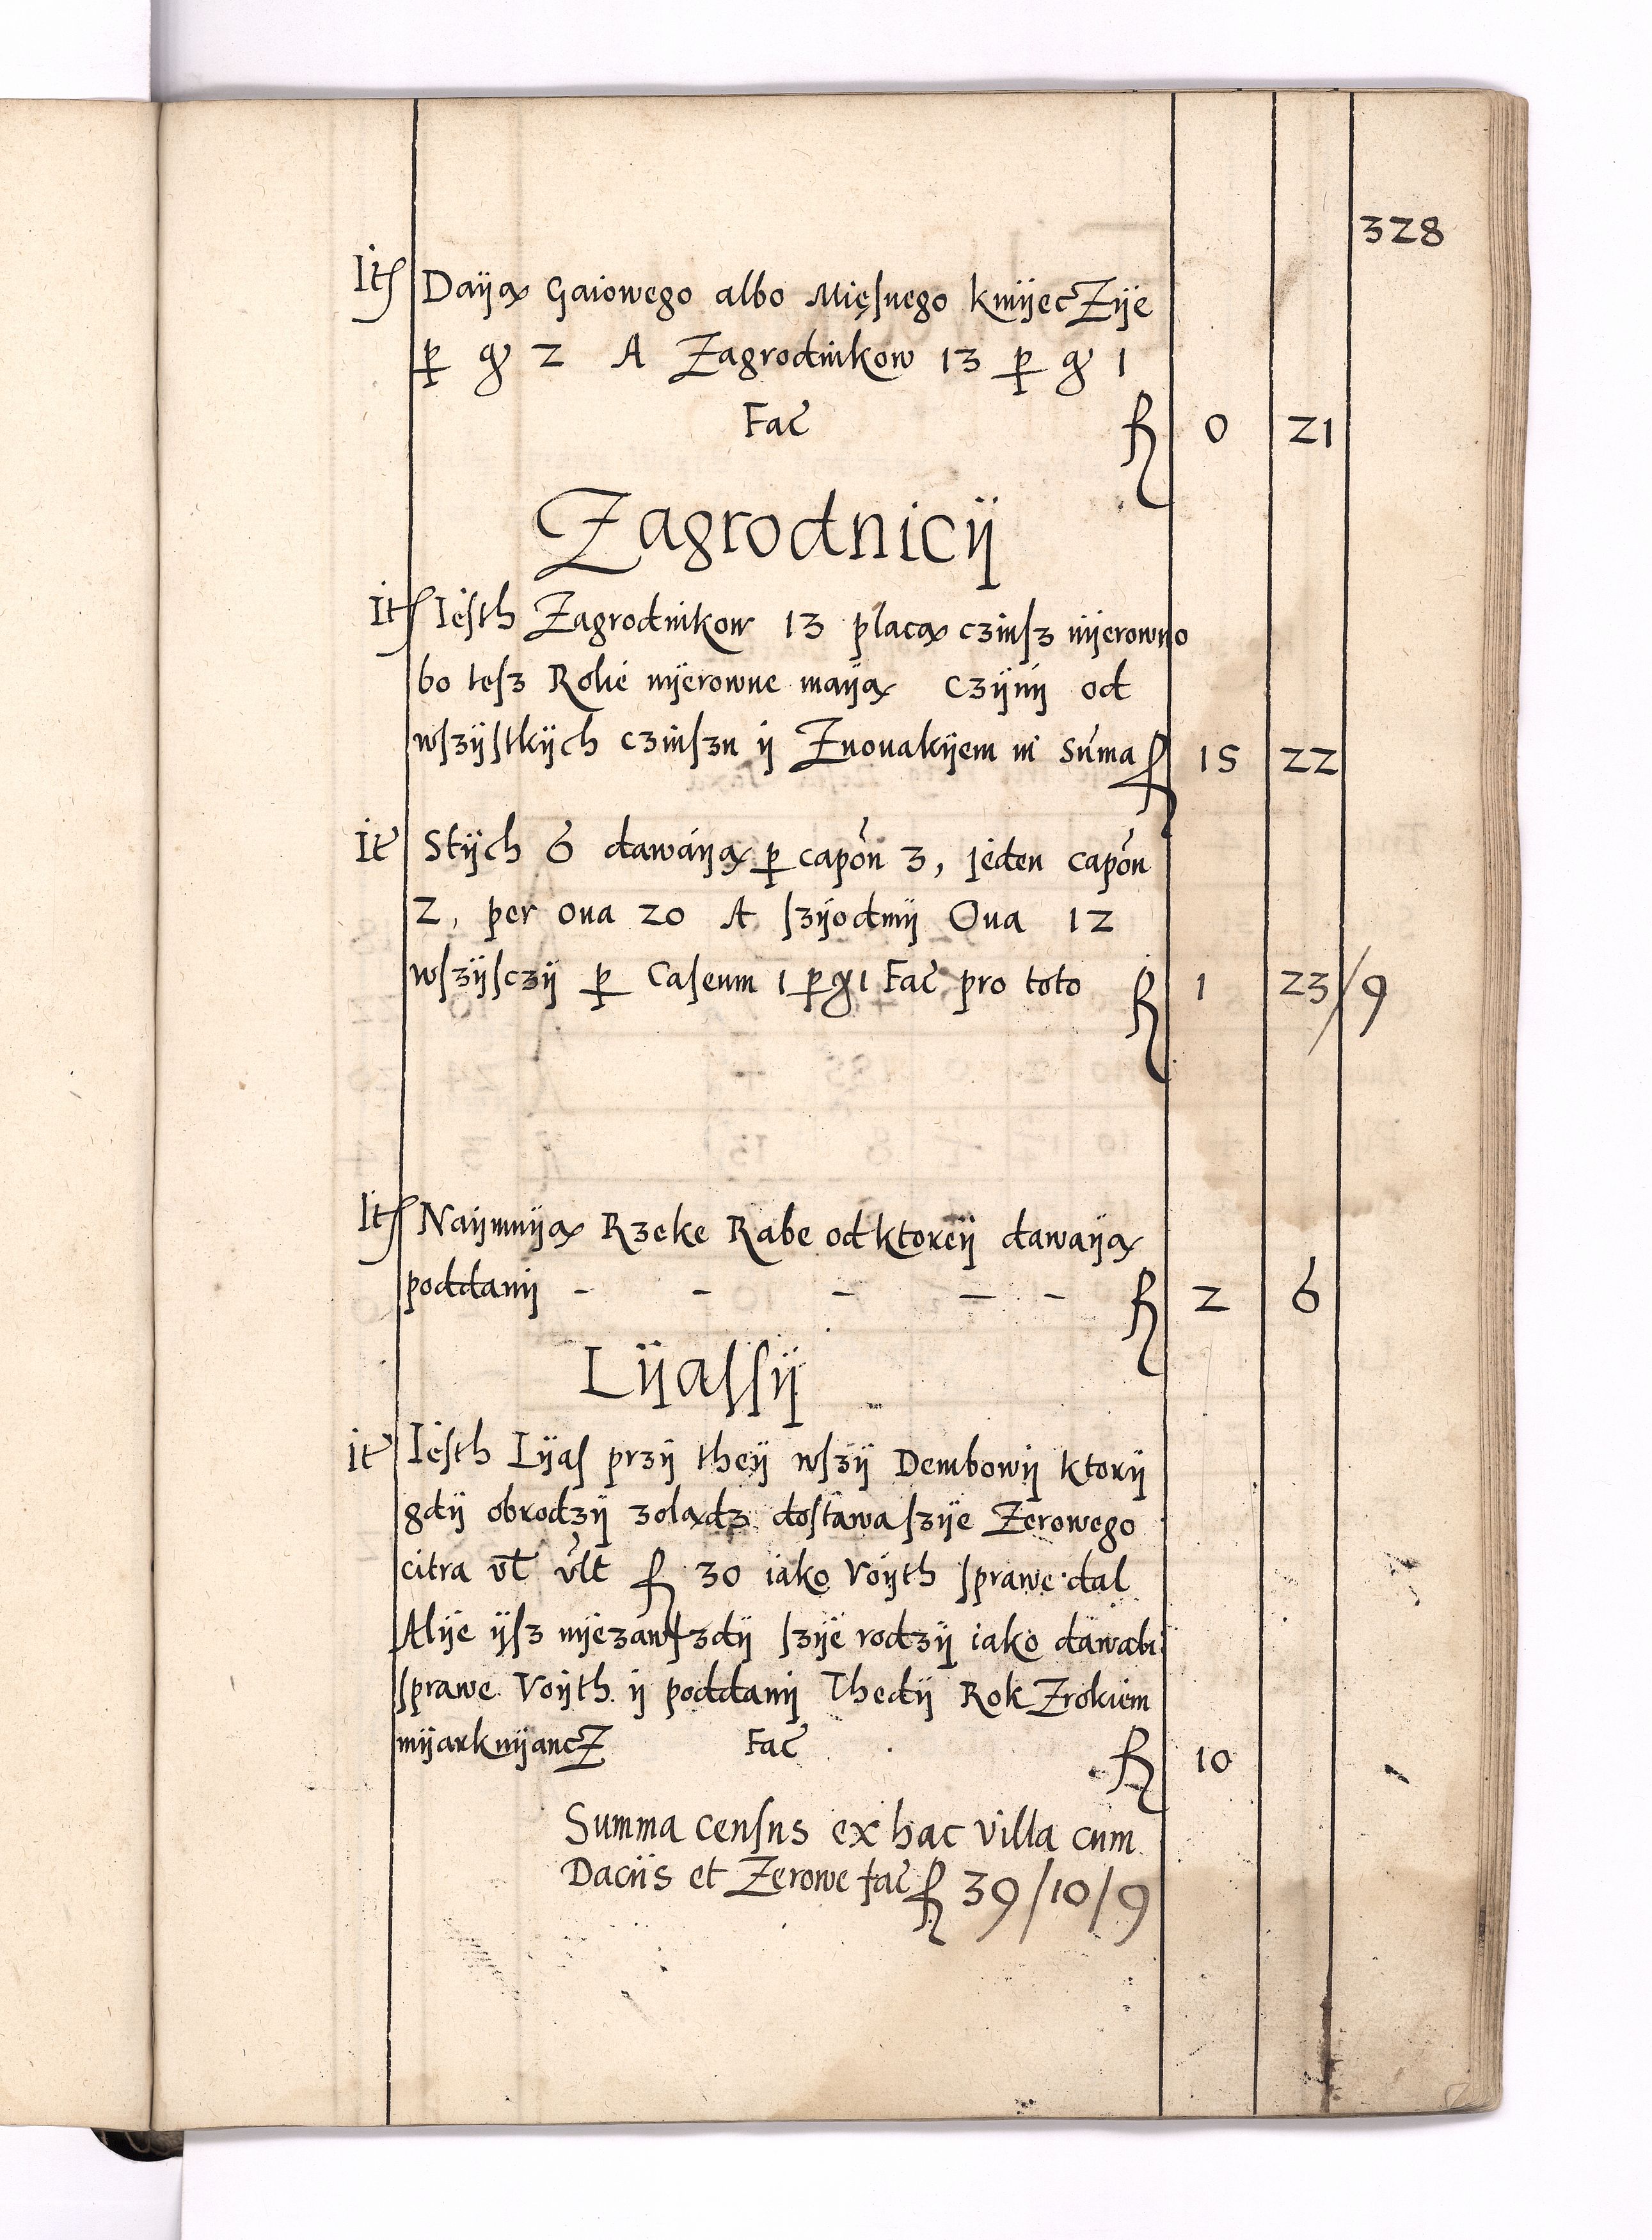 328
It Daÿą Gaiowego albo Mięsnego kmÿeczÿe
p gr 2 A Zagrodnikow 13 p gr 1
Fac fl 0 21
Zagrodnicÿ
It Iesth Zagrodnikow 13 placą czinſz nÿerowno
bo teſz Rolie nÿerowne maÿą czÿnÿ od
wſzÿſtkÿch czinſzu ÿ Znouakÿem in Suma fl 15 22
It Stÿch 6 dawaÿą p capon 3, jeden capon
2, per oua 20 A ſzÿodmÿ Oua 12
wſzÿſczÿ p Caſeum 1 p gr 1 Fac pro toto fl 1 23/9
It Naÿmuÿą Rzeke Rabe od ktoreÿ dawaÿą
poddanÿ - - - - - fl 2 6
Lÿaſſÿ
It Iesth Lÿaſ przÿ theÿ wſzÿ Dembowÿ ktorÿ
gdÿ obrodzÿ zolądz dostawa ſzÿe Zerowego
citra vl vlt fl 30 iako Voÿth ſprawe dal
Alÿe ÿſz nÿezawſzdÿ ſzÿe rodzÿ iako dawali
ſprawe Voÿth ÿ poddanÿ Thedÿ Rok Zrokiem
mÿarkuÿancz Fac fl 10
Summa cenſus ex hac villa cum
Daciis et Zerowe fac fl 39/10/9